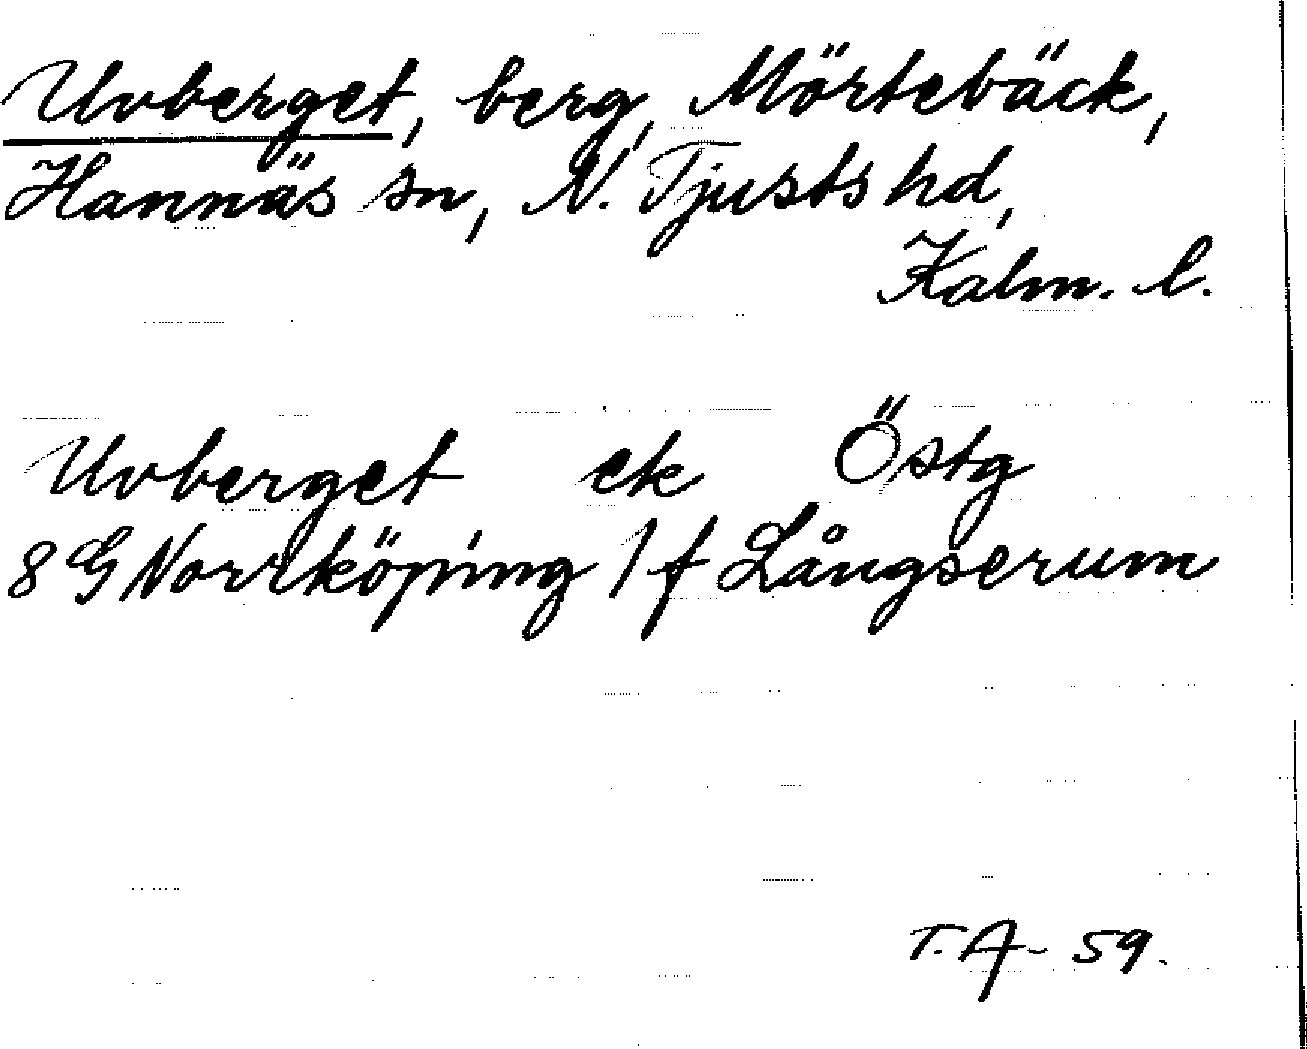 Uvberget, berg, Mörtebäck,
Hannäs sn, N. Tjusts hd,
Kalm. l.
Uvberget ek Östg
8 G Norrköping 1 f Långserum
T. A - 59.